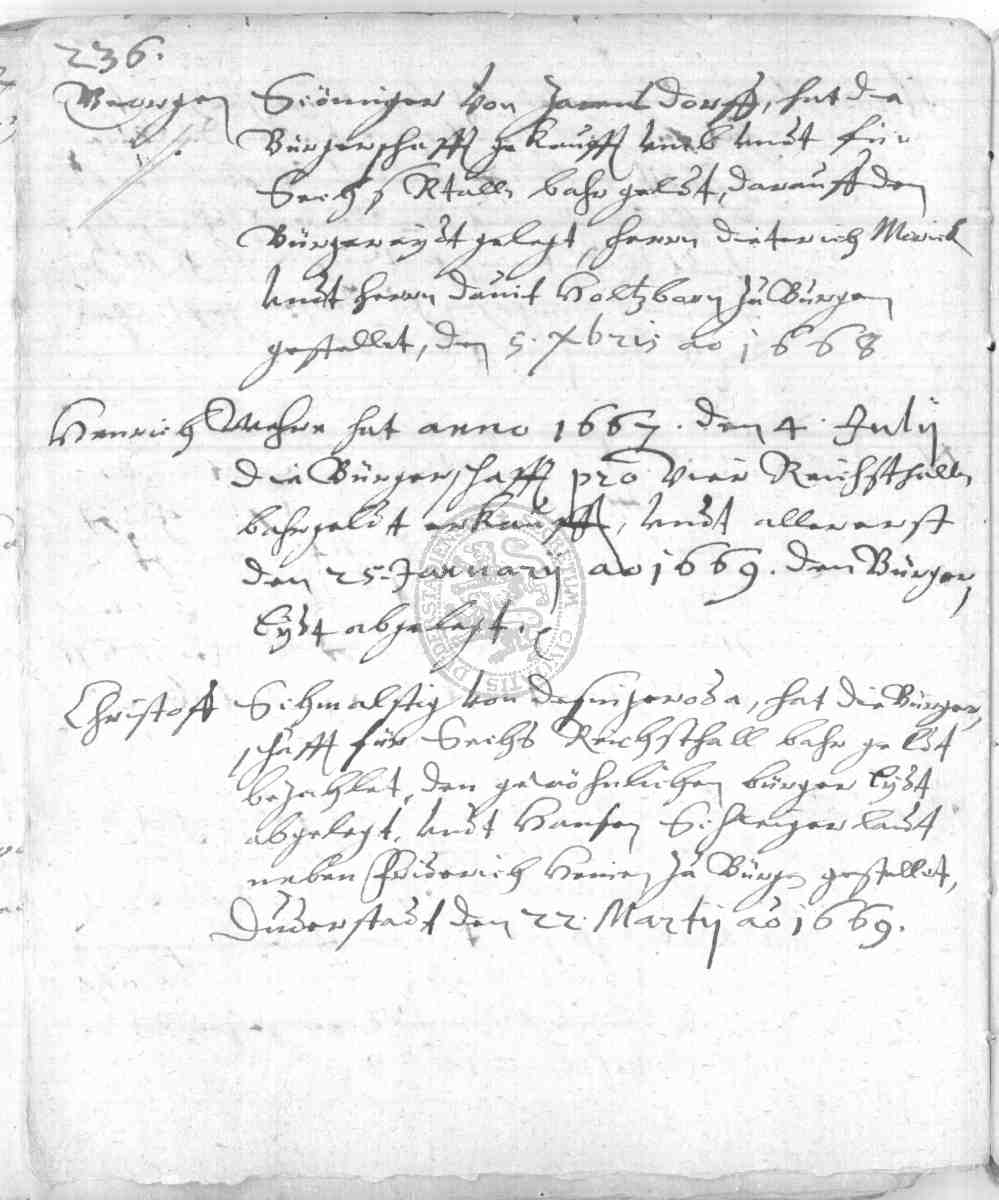 236.
Georgen Siömiger von Jaemsdorff, hat die
Bürgerschafft gekaufft undt für
Sechs Rthalr bahr geldt, darauff den
Bürgereydt gelegt, herrn Dieterich
undt herrn Davit Holtzborn zu Bürgen
gestellet, den 5. Xbris ao 1668
Henrich Wehre hat anno 1667. den 4. July
die Bürgerschafft pro vier Reichsthalr
bahrgeldt erkaufft, undt allererst
den 25. Januarij ao 1669. den Bürger,
Eydt abgelegt.
Christoff Schmalstig von Desingeroda, hat die Bürger,
schafft für Sechs Reichsthall bahr geldt
bezahlet, den gewöhnlichen bürger Eydt
abgelegt, undt Hansen
neben Friderich Heinen zu Bürgen gestellet,
Duderstadt den 22 Martij ao 1669.